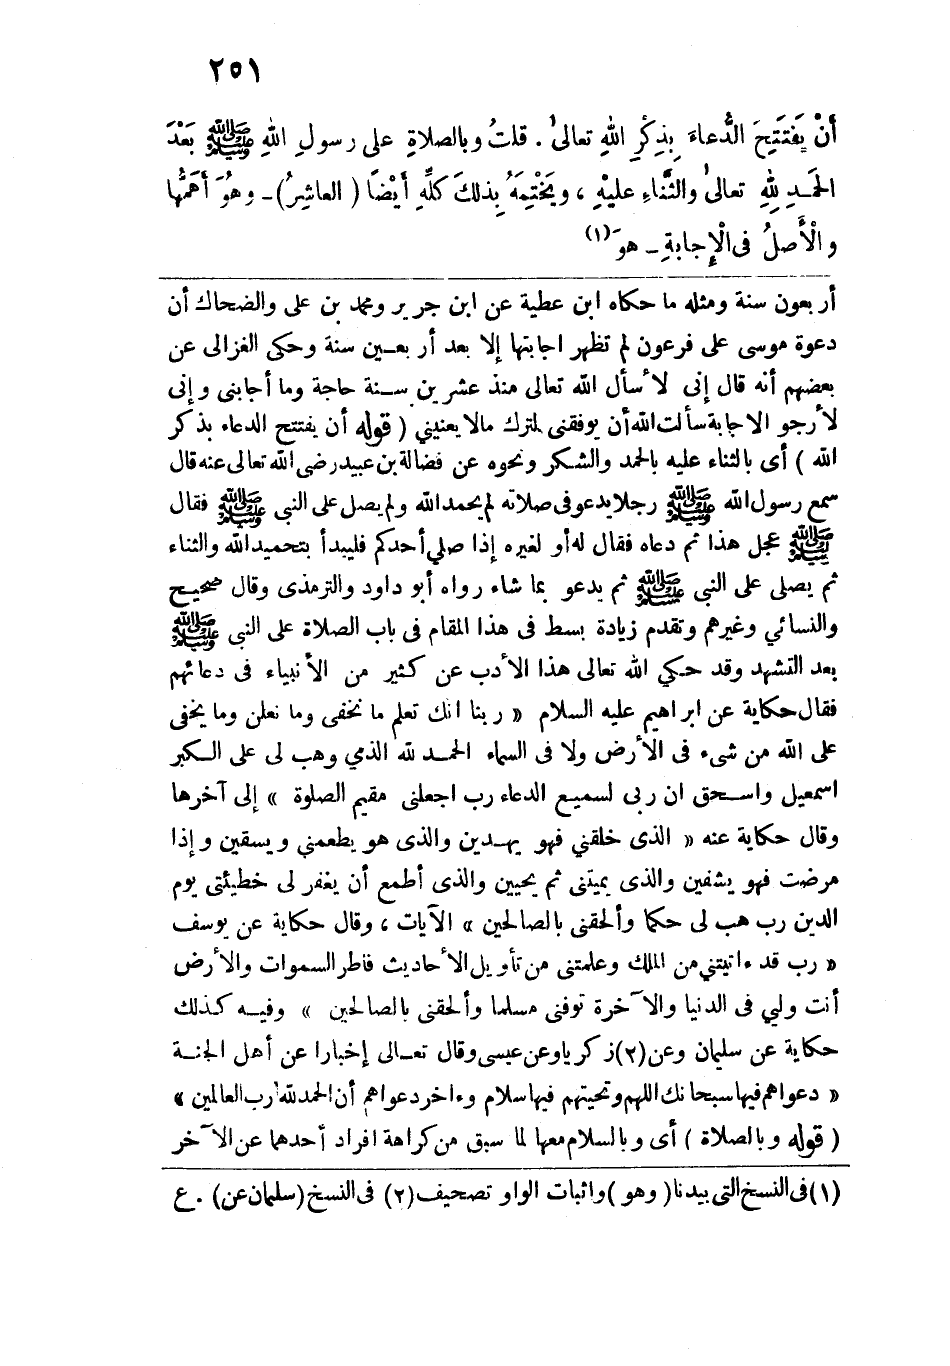 ٢٥١
أَنْ يَفتَتِحَ الدُّعاءَ بِذِكْرِ اللهِ تعالىٰ . قلتُ وبالصلاةِ على رسولِ اللهِ ﷺ بَعْدَ
الحَمْدِ لِلهِ تعالىٰ والثَّناءِ عليْهِ ، ويَخْتِمَهُ بِذلكَ كلِّهِ أَيْضًا ( العاشِرُ ) ـ وهُوَ أَهَمُّها
والْأَصلُ فى الْإِجابةِ ـ هوَ (١)
أربعون سنة ومثله ما حكاه ابن عطية عن ابن جرير ومحمد بن على والضحاك أن
دعوة موسى على فرعون لم تظهر اجابتها إلا بعد أربعين سنة وحكى الغزالى عن
بعضهم أنه قال إنى لأسأل الله تعالى منذ عشرين سنة حاجة وما أجابنى وإنى
لأرجو الاجابة سألت الله أن يوفقنى لترك مالا يعنيني ( قوله أن يفتتح الدعاء بذكر
الله ) أى بالثناء عليه بالحمد والشكر ونحوه عن فضالة بن عبيد رضى الله تعالى عنه قال
سمع رسول الله ﷺ رجلا يدعو فى صلاته لم يحمد الله ولم يصل على النبى ﷺ فقال
ﷺ عجل هذا ثم دعاه فقال له أو لغيره إذا صلي أحدكم فليبدأ بتحميد الله والثناء
ثم يصلى على النبى ﷺ ثم يدعو بما شاء رواه أبو داود والترمذى وقال صحيح
والنسائي وغيرهم وتقدم زيادة بسط فى هذا المقام فى باب الصلاة على النبى ﷺ
بعد التشهد وقد حكي الله تعالى هذا الأدب عن كثير من الأنبياء فى دعائهم
فقال حكاية عن ابراهيم عليه السلام « ربنا انك تعلم ما نخفى وما نعلن وما يخفى
على الله من شىء فى الأرض ولا فى السماء الحمد لله الذي وهب لى على الكبر
اسمعيل واسحق ان ربى لسميع الدعاء رب اجعلنى مقيم الصلوة » إلى آخرها
وقال حكاية عنه « الذى خلقني فهو يهدين والذى هو يطعمني ويسقين وإذا
مرضت فهو يشفين والذى يميتنى ثم يحيين والذى أطمع أن يغفر لى خطيئتى يوم
الدين رب هب لى حكما وألحقنى بالصالحين » الآيات ، وقال حكاية عن يوسف
« رب قد ءاتيتني من الملك وعلمتنى من تأويل الأحاديث فاطر السموات والأرض
أنت ولي فى الدنيا والآخرة توفنى مسلما وألحقنى بالصالحين » وفيه كذلك
حكاية عن سليمان وعن (٢) زكريا وعن عيسى وقال تعالى إخبارا عن أهل الجنة
« دعواهم فيها سبحانك اللهم وتحيتهم فيها سلام وءاخر دعواهم أن الحمد لله رب العالمين »
( قوله وبالصلاة ) أى وبالسلام معها لما سبق من كراهة افراد أحدهما عن الآخر
(١) فى النسخ التى بيدنا ( وهو ) واثبات الواو تصحيف (٢) فى النسخ ( سليمان عن ) . ع